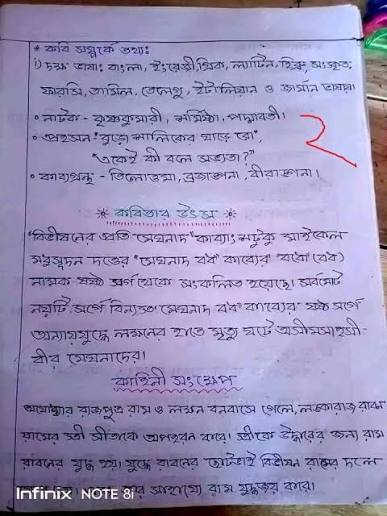 * কবি সম্পর্কে তথ্য:
১) দক্ষ ভাষা: বাংলা, ইংরেজী, গ্রিক, ল্যাটিন, হিব্রু, সংস্কৃত,
ফারসি, তামিল, তেলেগু, ইটালিয়ান ও জার্মান ভাষায়।
• নাটক - কৃষ্ণকুমারী, শর্মিষ্ঠা, পদ্মাবতী।
• প্রহসন "বুড়ো শালিকের ঘাড়ে রো",
"একেই কী বলে সভ্যতা?"
• কাব্যগ্রন্থ - তিলোত্তমা, ব্রজাঙ্গনা, বীরাঙ্গনা।
* কবিতার উৎস *
"বিভীষনের প্রতি মেঘনাদ" কাব্যাংশটুকু মাইকেল
মধুসূদন দত্তের "মেঘনাদ বধ" কাব্যের 'বধো' (বধ)
নামক ষষ্ঠ সর্গ থেকে সংকলিত হয়েছে। সর্বমোট
নয়টি সর্গে বিন্যস্ত 'মেঘনাদ বধ' কাব্যের ষষ্ঠ সর্গে
অন্যায়যুদ্ধে লক্ষনের হাতে মৃত্যু ঘটে অসীমসাহসী-
বীর মেঘনাদের।
কাহিনী সংক্ষেপ
অযোধ্যার রাজপুত্র রাম ও লক্ষন বনবাসে গেলে, লঙ্কারাজ রাবন
রামের স্ত্রী সীতাকে অপহরন করে। স্ত্রীকে উদ্ধারের জন্য রাম
রাবনের যুদ্ধ হয়। যুদ্ধে রাবনের ছোটভাই বিভীষন রামের দলে
সাহায্যে রাম যুদ্ধজয় করে।
Infinix NOTE 8i